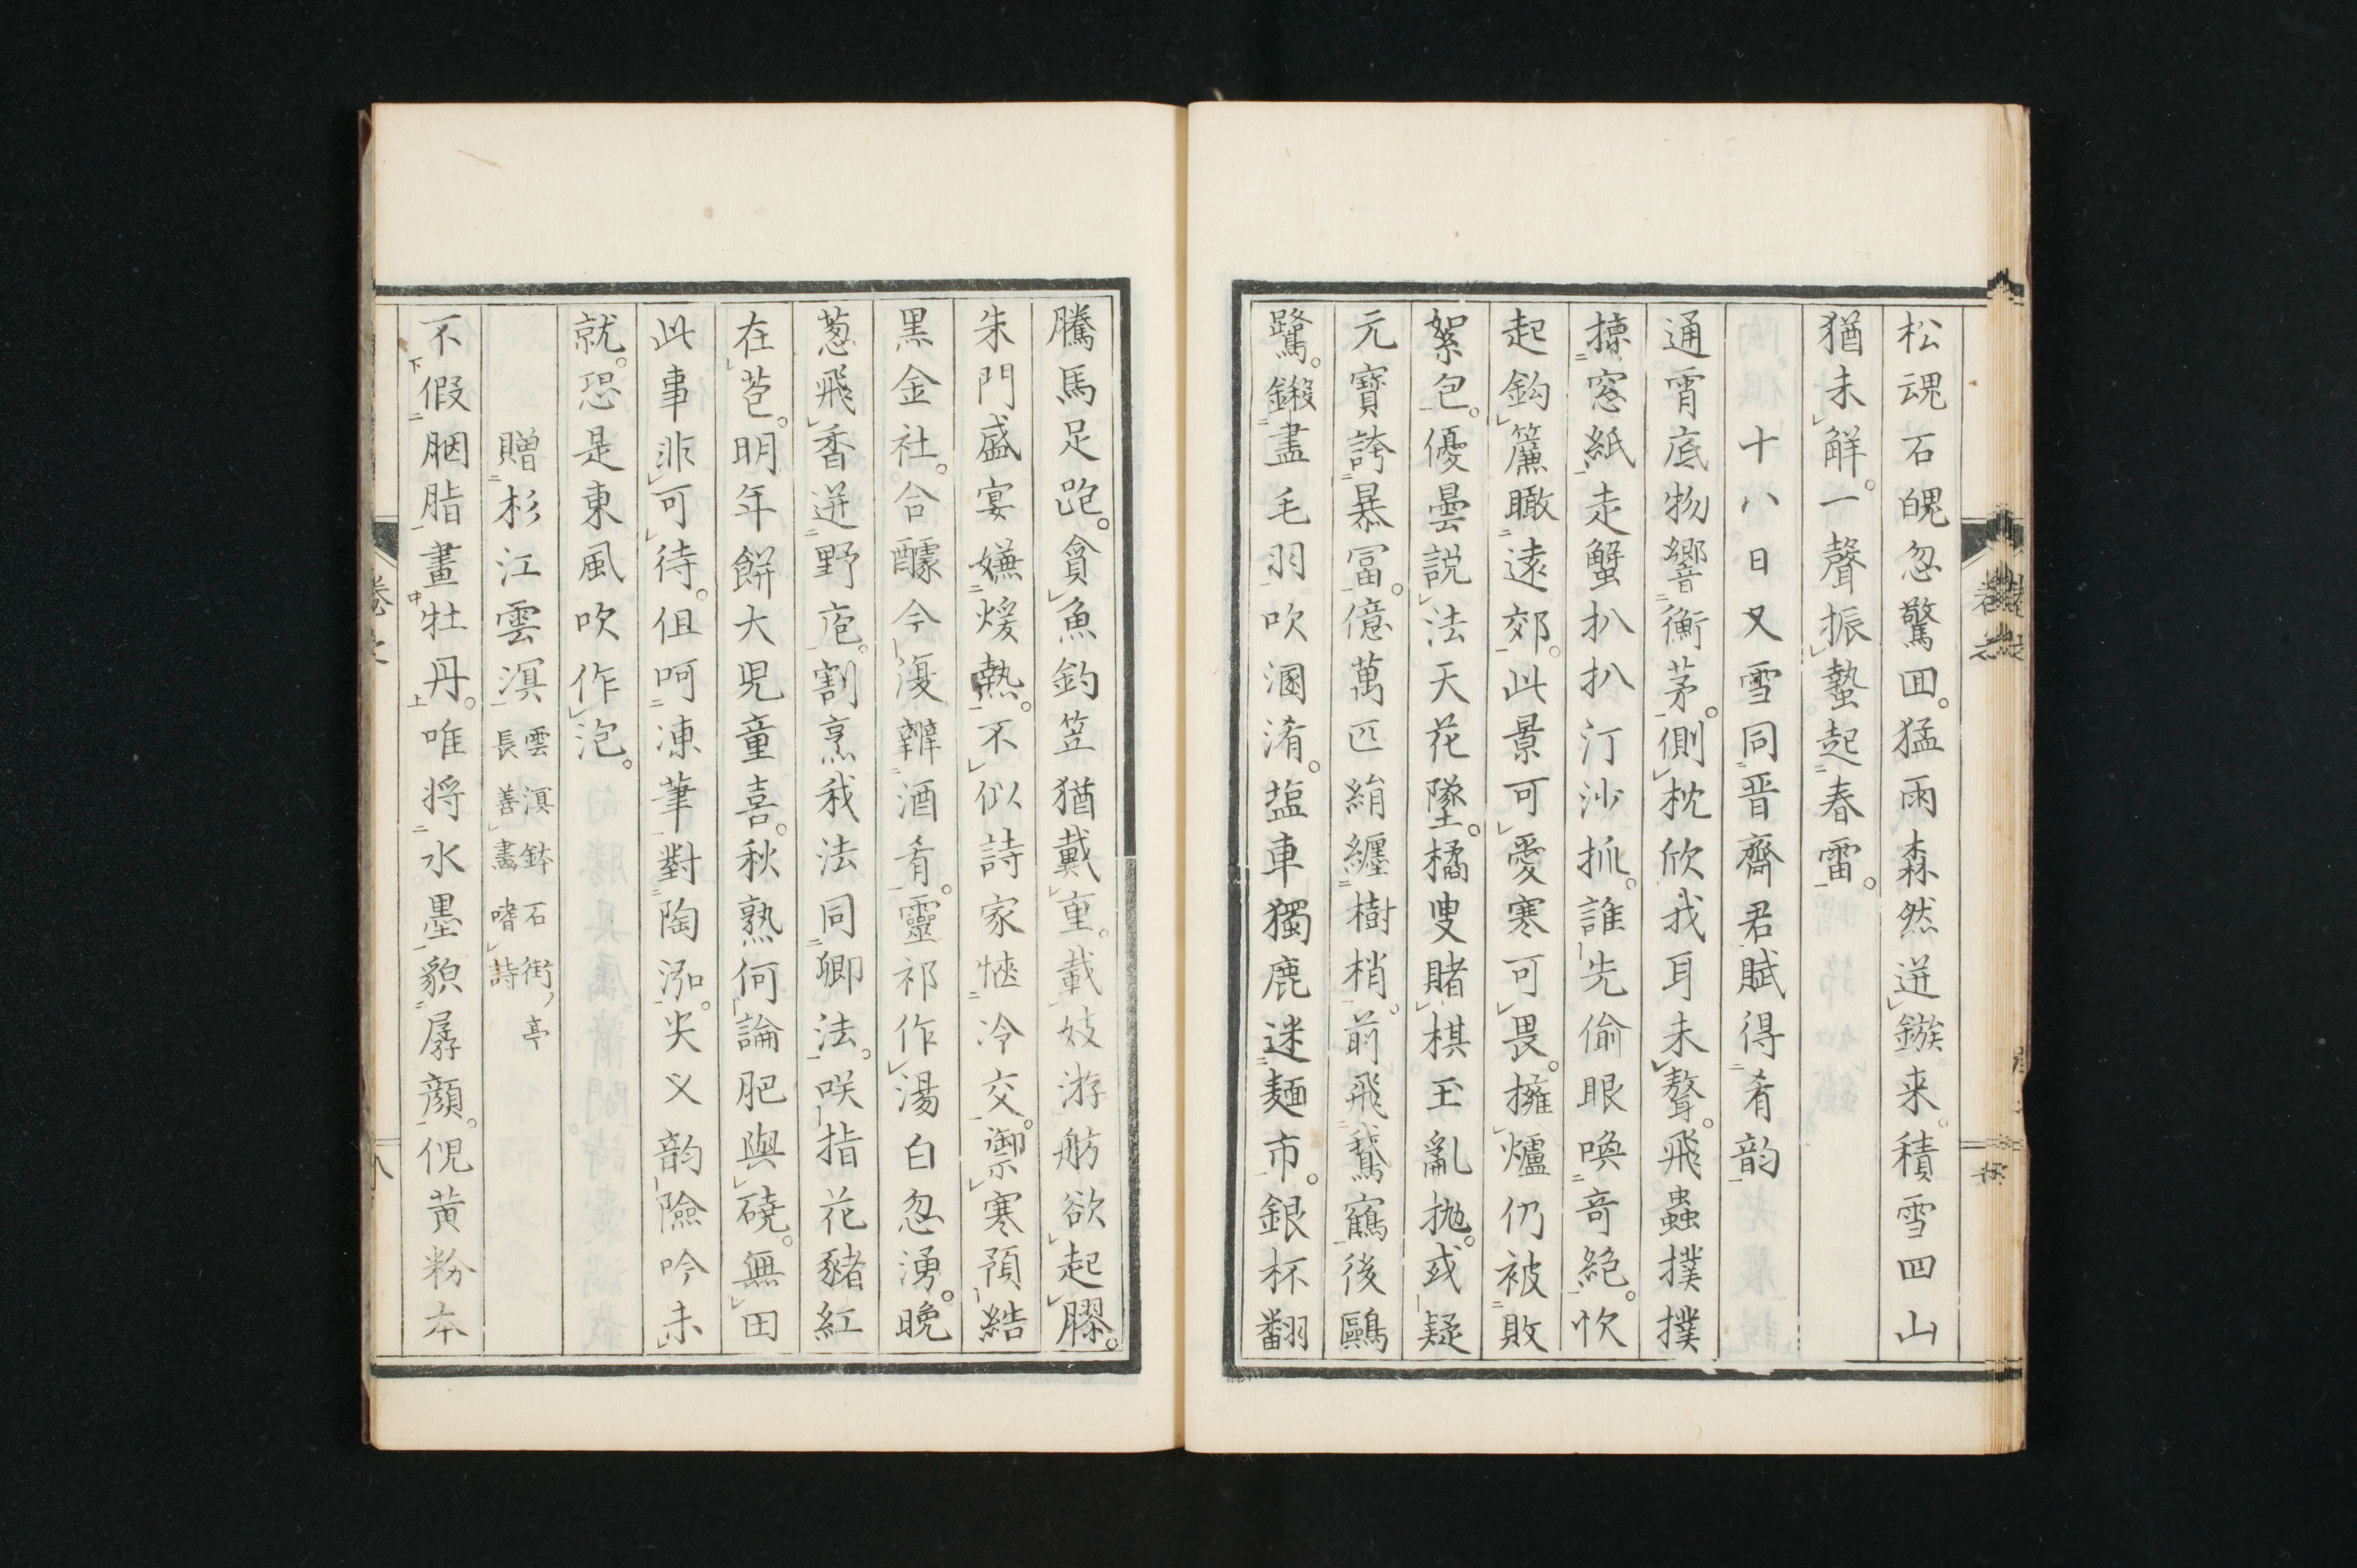 松魂石魄忽驚回。猛雨森然迸鏃来。積雪四山
猶未解。一聲振蟄起春雷。
十八日又雪同晋齋君賦得肴韵
通霄底物響衡茅。側枕欣我耳未聱。飛蟲撲撲
掠窓紙走蟹扒扒汀沙抓。誰先偷眼喚奇絶。忺
起鈎簾瞰遠郊。此景可愛寒可畏。擁爐仍被敗
絮包。優曇説法天花墜。橘叟賭棋玉亂抛。或疑
元寶誇暴富。億萬匹絹纏樹梢。前飛鵞鶴後鷗
鷺。鎩盡毛羽吹溷淆。塩車獨鹿迷麺市。銀杯翻
騰馬足跑。貪魚釣笠猶戴重。載妓游舫欲起膠。
朱門盛宴嫌煖熱。不似詩家愜冷交。禦寒預結
黒金社。合醵今復辦酒肴。靈祁作湯白忽湧。晩
葱飛香迸野庖。割烹我法同卿法。咲指花豬紅
在苞。明年餅大児童喜。秋熟何論肥與磽。無田
此事非可待。但呵凍筆對陶泓。尖叉韵險吟未
就。恐是東風吹作泡。
贈杉江雲溟雲溟鉢石街亭
長善畫嗜詩
不假胭脂畫牡丹。唯将水墨貌孱顔。倪黄粉本